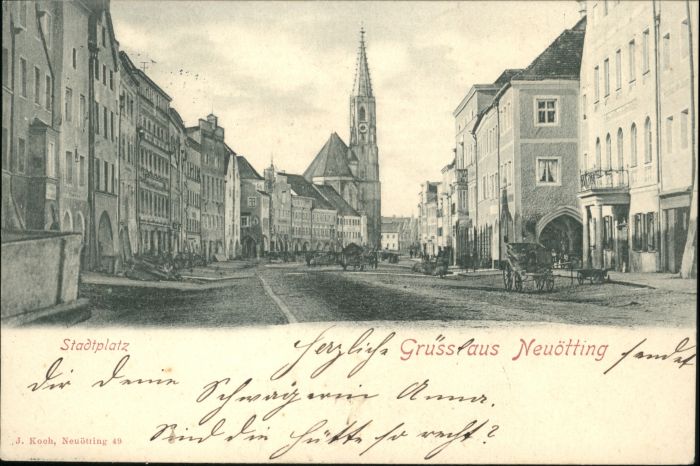 Stadtplatz
Herzliche Grüsse aus Neuötting sendet
dir deine Schwägerin Anna.
Sind die Hütte so recht?
J. Koch, Neuötting 49